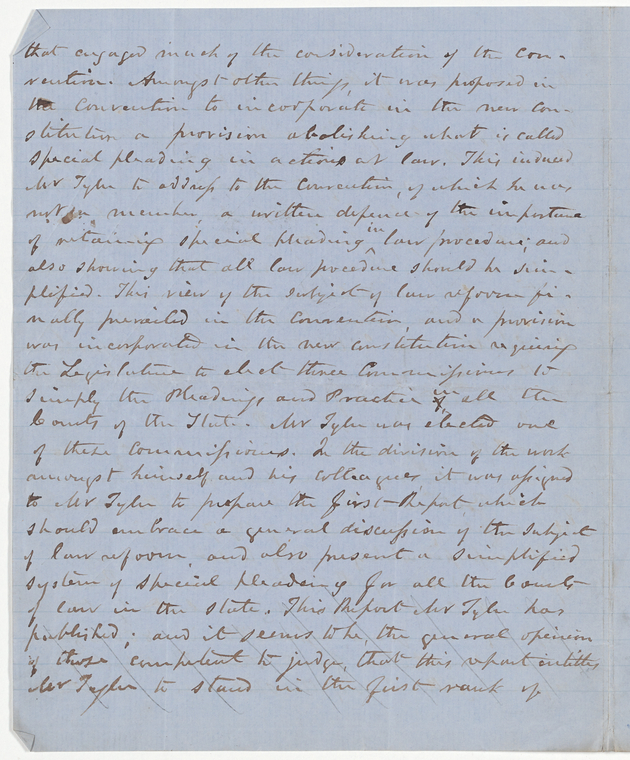 that engaged much of the consideration of the Con-
vention. Amongst other things, it was proposed in
the Convention to incorporate in the new Con-
stitution a provision abolishing what is called
special pleading in actions at law. This induced
Mr Tyler to address to the Convention, of which he was
not a member, a written defence of the importance
of retaining special pleading in law procedure; and
also showing that all law procedure should be sim-
plified. This view of the subject of law reform fi-
nally prevailed in the Convention, and a provision
was incorporated in the new constitution requiring
the Legislature to elect three Commissioners to
simply the Pleadings and Practice in all the
Courts of the State. Mr Tyler was elected one
of these Commissioners. In the division of the work
amongst himself and his colleagues, it was assigned
to Mr Tyler to prepare the first Report, which
should embrace a general discussion of the subject
of law reform, and also present a simplified
system of special pleading for all the Courts
of law in the State. This Report Mr Tyler has
published; and it seems to be the general opinion
of those competent to judge, that this report entitles
Mr Tyler to stand in the first rank of